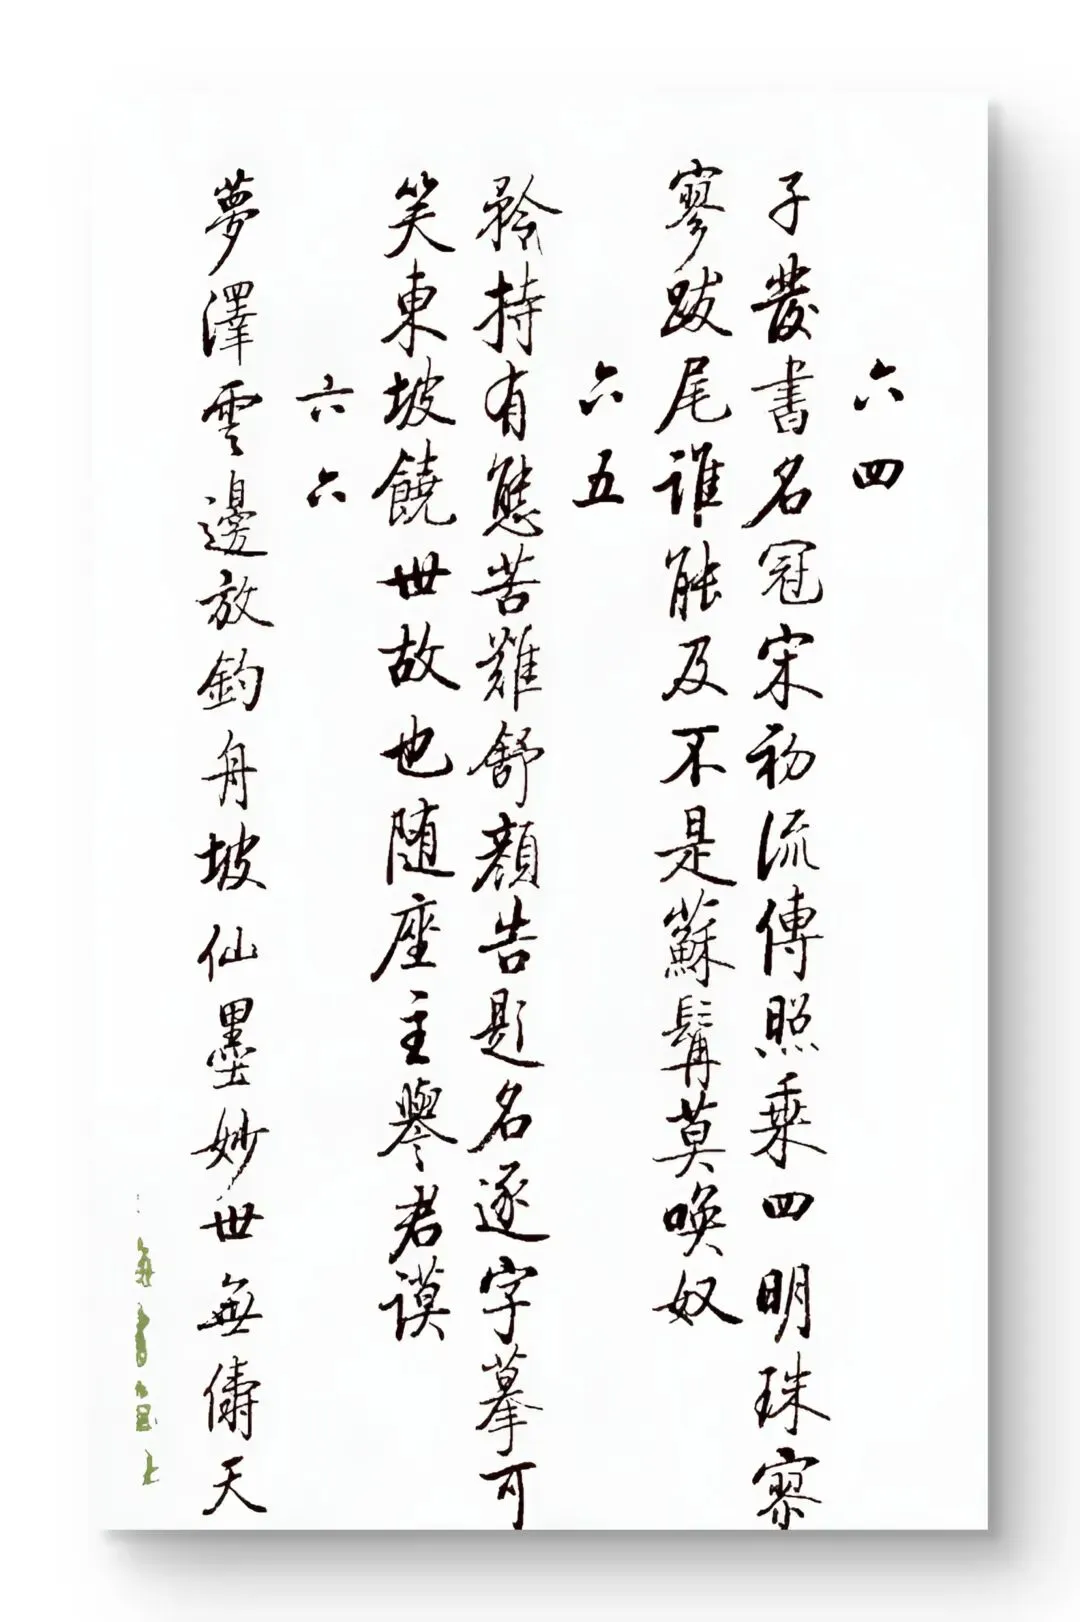 六四
子發書名冠宋初流傳照乘四明珠寥
寥跋尾誰能及不是蘇髯莫喚奴
六五
矜持有態苦難舒顏告題名逐字摹可
笑東坡饒世故也随座主譽君謨
六六
夢澤雲邊放釣舟坡仙墨妙世無儔天